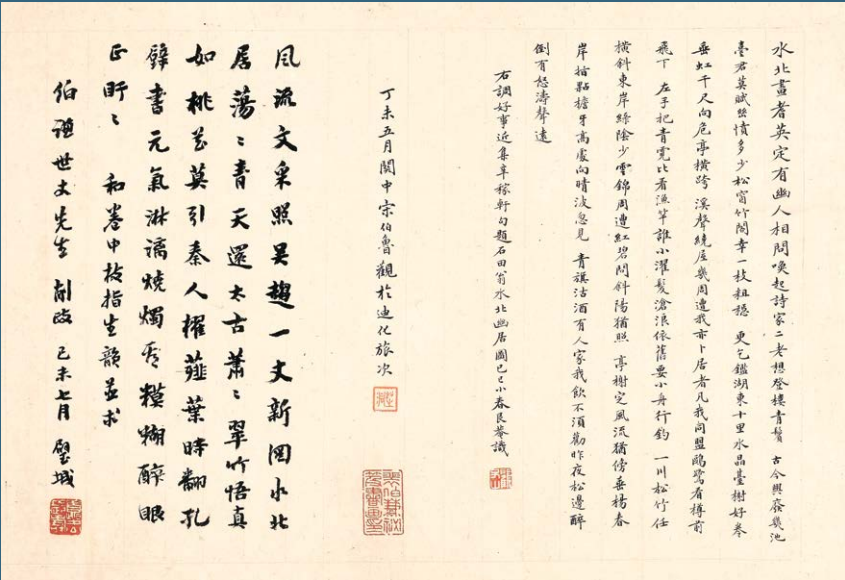 水北畫者英定有幽人相問喚起詩家二老想登樓青鬢 古今興廢幾池
臺君莫賦幽憤多少松窗竹閣幸一枝粗穩 更乞鑑湖東十里水晶臺榭好拳
垂虹千尺向危亭橫跨 溪聲繞屋幾周遭我亦卜居者凡我同盟鷗鷺看樽前
飛下 左手把青霓比著漁竿誰小濯髮滄浪依舊要小舟行釣 一川松竹任
橫斜東岸綠陰少雲錦周遭紅碧問斜陽猶照 亭榭定風流猶傍垂楊春
岸拾點檐牙高處向晴波忽見 青旗沽酒有人家我飲不須勸昨夜松邊醉
倒有怒濤聲遠
右調好事近集辛稼軒句題石田翁水北幽居圖己巳小春艮菴識
丁未五月關中宋伯魯觀於迪化旅次
風流文采照吳趨一丈新圖水北
居蕩〻青天還太古蕭〻翠竹悟真
如桃花莫引秦人櫂薤葉時翻孔
壁書元氣淋漓燒燭看糢糊醉眼
正盱〻 和卷中枝指生韻並求
伯謙世丈先生 削政 己未七月 壁城